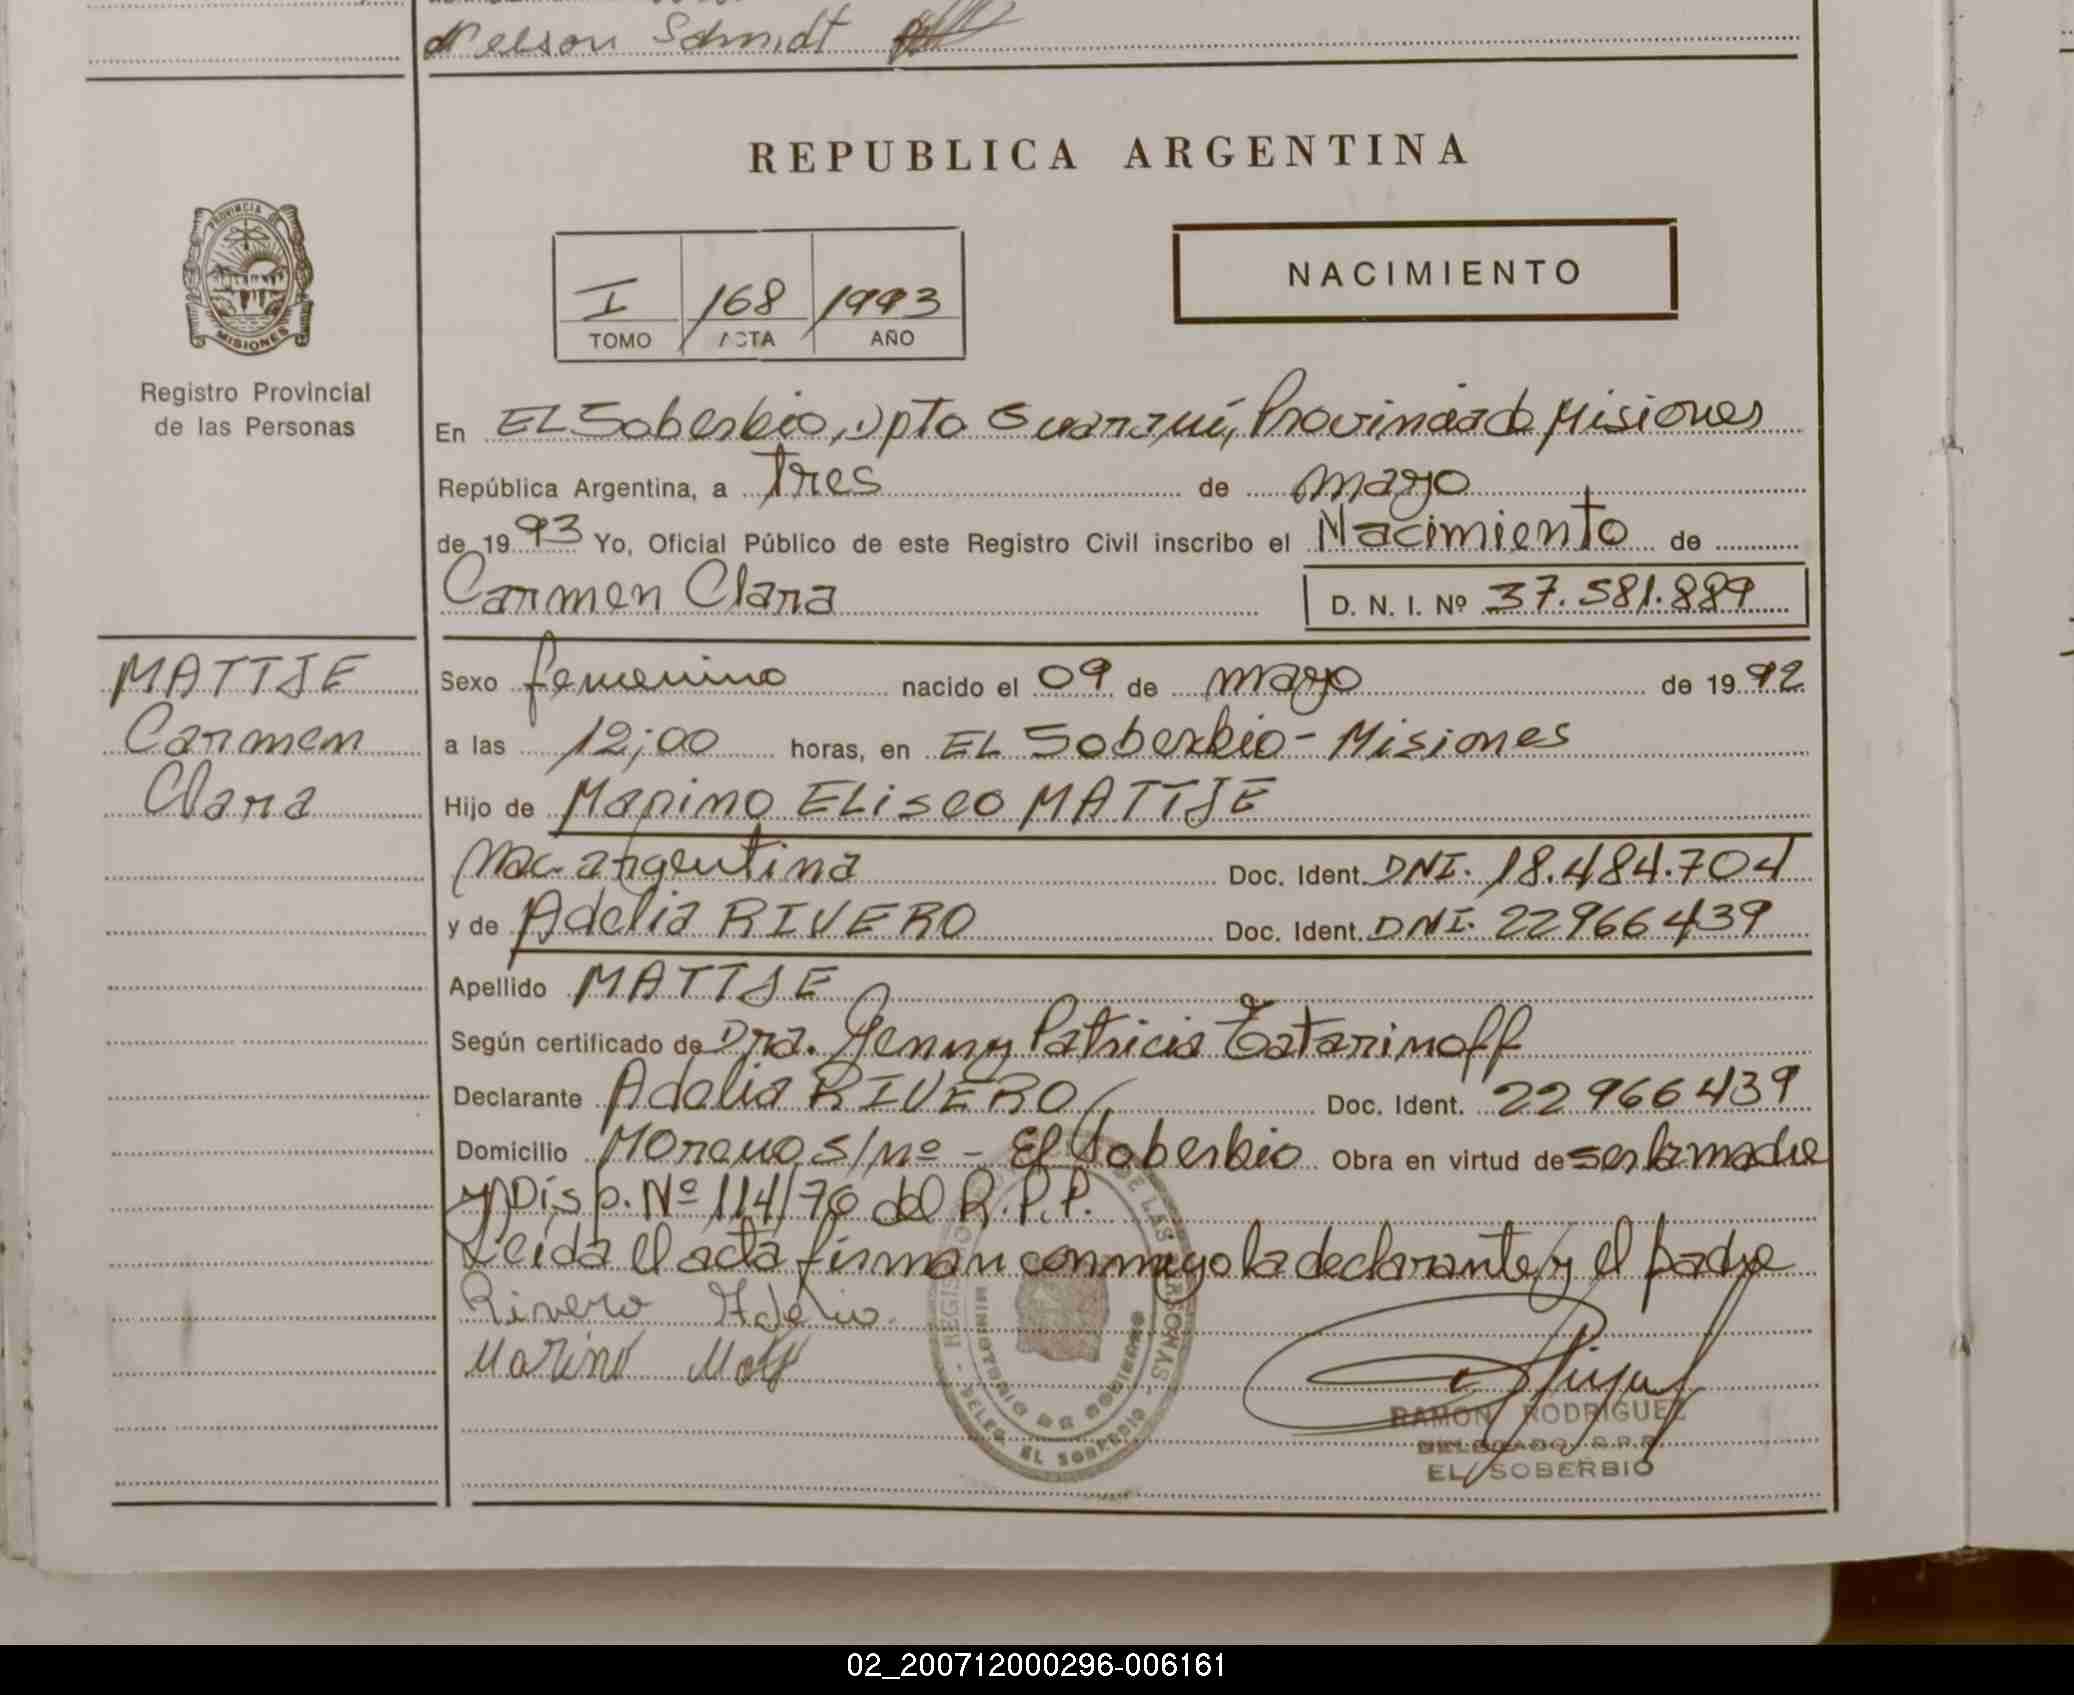 Nelson Schmidt
REPUBLICA ARGENTINA
PROVINCIA DE
MISIONES
Registro Provincial
de las Personas
I 168 1993
TOMO ACTA AÑO
NACIMIENTO
En EL Soberbio, Dpto Guaraní, Provincia de Misiones
República Argentina, a Tres de mayo
de 1993 Yo, Oficial Público de este Registro Civil inscribo el Nacimiento de
Carmen Clara D. N. I. Nº 37.581.889
MATTJE
Carmen
Clara
Sexo femenino nacido el 09 de mayo de 1992
a las 12;00 horas, en EL Soberbio - Misiones
Hijo de Marino ELiseo MATTJE
Nac. argentina Doc. Ident. DNI. 18.484.704
y de Adelia RIVERO Doc. Ident. DNI. 22966439
Apellido MATTJE
Según certificado de Dra. Jenny Patricia Tatarinoff
Declarante Adelia RIVERO Doc. Ident. 22966439
Domicilio Moreno s/nº - El Soberbio Obra en virtud de ser la madre
y Disp. Nº 114/76 del R.P.P.
Leida el acta firman conmigo la declarante y el padre
Rivero Adelia
Marino Matt
REGISTRO DE LAS PERSONAS
MINISTERIO DE GOBIERNO
DELEG. EL SOBERBIO
RAMON RODRIGUEZ
DELEGADO R.P.P.
EL SOBERBIO
02_200712000296-006161